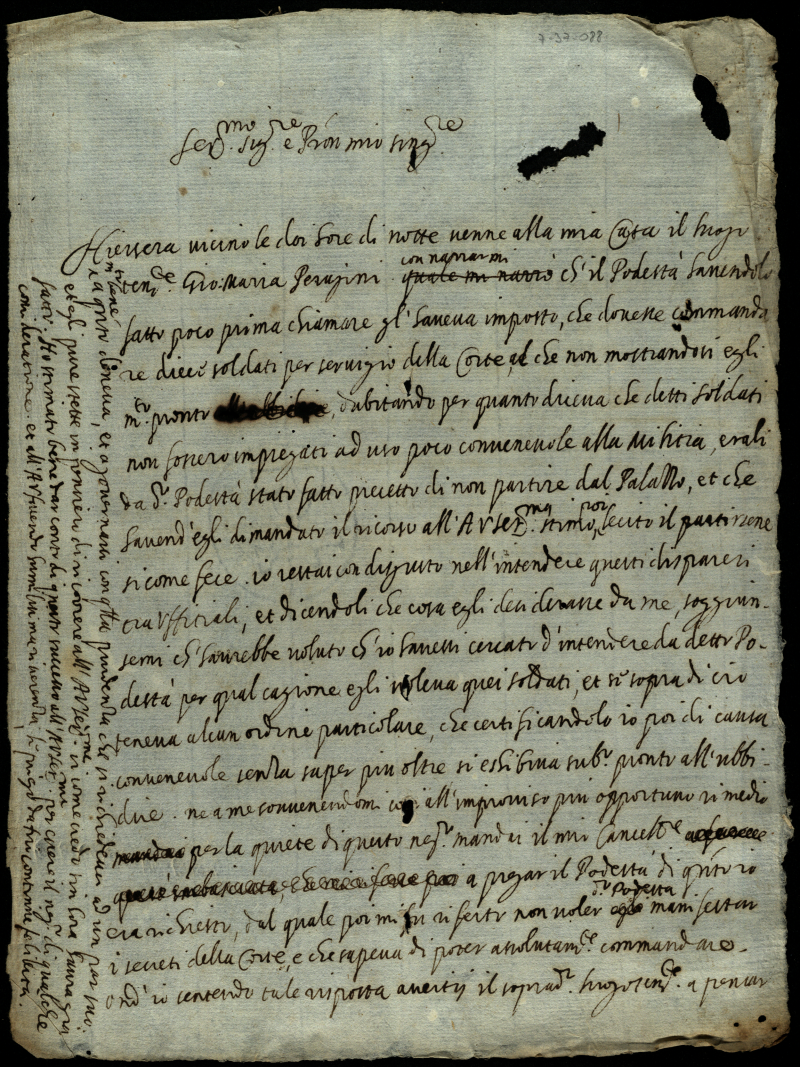 7-37-088
Ser.mo Sig.re e Pron mio sing.re
Hiersera vicino le doi hore di notte venne alla mia Casa il luogo
ten.te Gio: Maria Perugini con narrarmi quale mi narrò ch'il Podestà havendolo
fatto poco prima chiamare gl'haveva imposto, che dovesse commanda
re dieci soldati per servigio della Corte, al che non mostrandosi egli
m.to pronto dubitando per quanto diceva che detti soldati
non fossero impiegati ad uso poco convenevole alla militia, erali
da d.o Podestà stato fatto precetto di non partire dal Palazzo, et che
havend'egli dimandato il ricorso all'A V Ser.ma stimò, lecito il partirsene
si come fece. io restai con disgusto nell'intendere questi dispareri
tra Vffitiali, et dicendoli che cosa egli desiderasse da me, soggiun-
semi ch'havrebbe voluto ch'io havessi cercato d'intendere da detto Po-
destà per qual cagione egli voleva quei soldati, et se sopra di ciò
teneva alcun ordine particolare, che certificandolo io poi di causa
convenevole senza saper più oltre si esshibiva sub.o pronto all'ubbi-
dire. ne a me sovenendomi così all'improviso più opportuno rimedio
per la quiete di questo neg.o mandai il mio Cancell.e
a pregar il Podestà di q.nto io
era richiesto, dal quale poi mi fu riferto non voler d.o Podestà egli manifestar
i secreti della Corte, e che sapeva di poter assolutam.te commandare.
ond'io sentendo tale risposta avertij il soprad.o luogoten.te a pensar
a q.nto doveva, et a governarsi con q.lla prudenza che si richiedeva ad un par suo.
et egli pure stette in pensiero di ricorrere all'A V Ser.ma si come vedo sin hora havrà
fatto. Ho stimato bene dar conto di questo successo all'A V Ser.ma per essere il neg.o di qualche
consideratione. et all'A V facendo humilissima riverenza, le prego da Dio continue felicità.